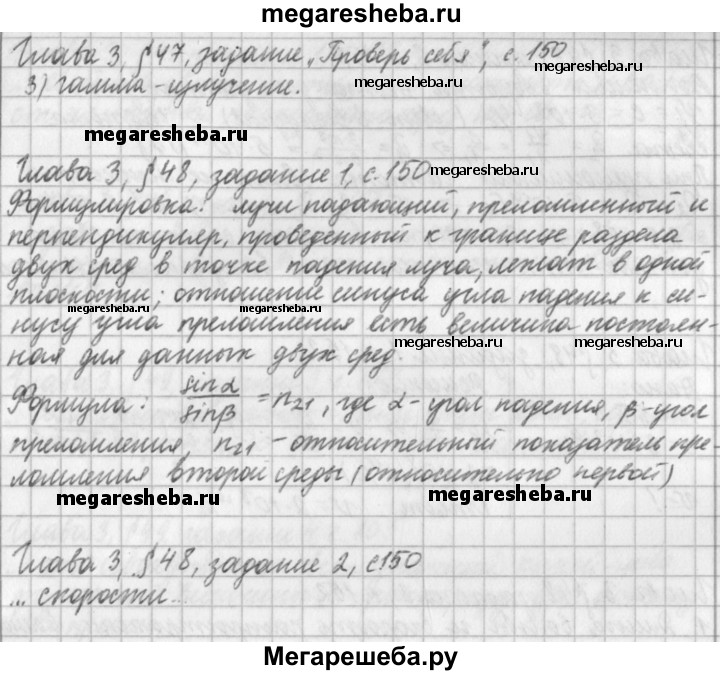 megaresheba.ru
Глава 3, §47, задание „Проверь себя", с. 150
megaresheba.ru
3) гамма-излучение.
megaresheba.ru
megaresheba.ru
Глава 3, §48, задание 1, с. 150
megaresheba.ru
Формулировка: лучи падающий, преломленный и
перпендикуляр, проведенный к границе раздела
двух сред в точке падения луча, лежат в одной
плоскости; отношение синуса угла падения к си-
megaresheba.ru megaresheba.ru
нусу угла преломления есть величина постоян-
ная для данных двух сред.
megaresheba.ru megaresheba.ru
Формула: sinα/sinβ = n21, где α-угол падения, β-угол
преломления, n21 -относительный показатель пре-
ломления второй среды (относительно первой)
megaresheba.ru megaresheba.ru
Глава 3, §48, задание 2, с150
... скорости...
Мегарешеба.ру